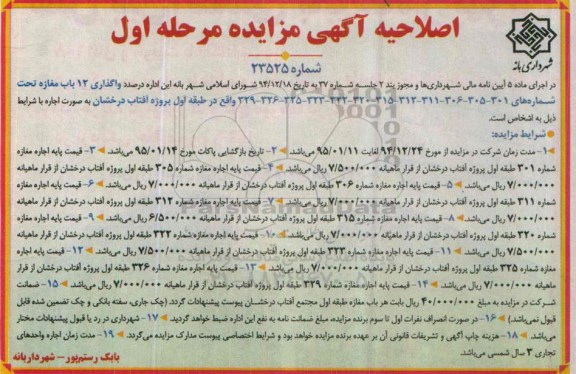 اصلاحیه آگهی مزایده مرحله اول
شهرداری بانه
شماره ۲۳۵۲۵
در اجرای ماده ۵ آیین نامه مالی شهرداری‌ها و مجوز بند ۲ جلسه شماره ۳۷ به تاریخ ۹۴/۱۲/۱۸ شورای اسلامی شهر بانه این اداره درصدد واگذاری ۱۲ باب مغازه تحت
شماره‌های ۳۰۱-۳۰۵-۳۰۶-۳۱۱-۳۱۲-۳۱۵-۳۲۰-۳۲۲-۳۲۳-۳۲۵-۳۳۶-۳۲۹ واقع در طبقه اول پروژه آفتاب درخشان به صورت اجاره با شرایط
ذیل به اشخاص است.
شرایط مزایده:
۱- مدت زمان شرکت در مزایده از مورخ ۹۴/۱۲/۲۴ لغایت ۹۵/۰۱/۱۱ می‌باشد. ۲- تاریخ بازگشایی پاکات مورخ ۹۵/۰۱/۱۴ می‌باشد. ۳- قیمت پایه اجاره مغازه
شماره ۳۰۱ طبقه اول پروژه آفتاب درخشان از قرار ماهیانه ۷/۵۰۰/۰۰۰ ریال می‌باشد. ۴- قیمت پایه اجاره مغازه شماره ۳۰۵ طبقه اول پروژه آفتاب درخشان از قرار ماهیانه
۷/۰۰۰/۰۰۰ ریال می‌باشد. ۵- قیمت پایه اجاره مغازه شماره ۳۰۶ طبقه اول پروژه آفتاب درخشان از قرار ماهیانه ۷/۰۰۰/۰۰۰ ریال می‌باشد. ۶- قیمت پایه اجاره مغازه
شماره ۳۱۱ طبقه اول پروژه آفتاب درخشان از قرار ماهیانه ۷/۰۰۰/۰۰۰ ریال می‌باشد. ۷- قیمت پایه اجاره مغازه شماره ۳۱۲ طبقه اول پروژه آفتاب درخشان از قرار ماهیانه
۷/۰۰۰/۰۰۰ ریال می‌باشد. ۸- قیمت پایه اجاره مغازه شماره ۳۱۵ طبقه اول پروژه آفتاب درخشان از قرار ماهیانه ۶/۵۰۰/۰۰۰ ریال می‌باشد. ۹- قیمت پایه اجاره مغازه
شماره ۳۲۰ طبقه اول پروژه آفتاب درخشان از قرار ماهیانه ۷/۰۰۰/۰۰۰ ریال می‌باشد. ۱۰- قیمت پایه اجاره مغازه شماره ۳۲۲ طبقه اول پروژه آفتاب درخشان از قرار ماهیانه
۷/۵۰۰/۰۰۰ ریال می‌باشد. ۱۱- قیمت پایه اجاره مغازه شماره ۳۲۳ طبقه اول پروژه آفتاب درخشان از قرار ماهیانه ۷/۵۰۰/۰۰۰ ریال می‌باشد. ۱۲- قیمت پایه اجاره
مغازه شماره ۳۲۵ طبقه اول پروژه آفتاب درخشان از قرار ماهیانه ۷/۰۰۰/۰۰۰ ریال می‌باشد. ۱۳- قیمت پایه اجاره مغازه شماره ۳۳۶ طبقه اول پروژه آفتاب درخشان از قرار
ماهیانه ۷/۰۰۰/۰۰۰ ریال می‌باشد. ۱۴- قیمت پایه اجاره مغازه شماره ۳۲۹ طبقه اول پروژه آفتاب درخشان از قرار ماهیانه ۷/۰۰۰/۰۰۰ ریال می‌باشد. ۱۵- ضمانت
شرکت در مزایده به مبلغ ۴۰/۰۰۰/۰۰۰ ریال بابت هر باب مغازه طبقه اول مجتمع آفتاب درخشان پیوست پیشنهادات گردد. (چک جاری، سفته بانکی و چک تضمین شده قابل
قبول نمی‌باشد.) ۱۶- در صورت انصراف نفرات اول تا سوم برنده مزایده، مبلغ ضمانت نامه به نفع این اداره ضبط خواهد گردید. ۱۷- شهرداری در رد یا قبول پیشنهادات مختار
می‌باشد. ۱۸- هزینه چاپ آگهی و تشریفات قانونی آن بر عهده برنده مزایده خواهد بود و شرایط اختصاصی پیوست مدارک مزایده می‌گردد. ۱۹- مدت زمان اجاره واحدهای
تجاری ۳ سال شمسی می‌باشد.
بابک رستم‌پور - شهردار بانه
ParsNamadData